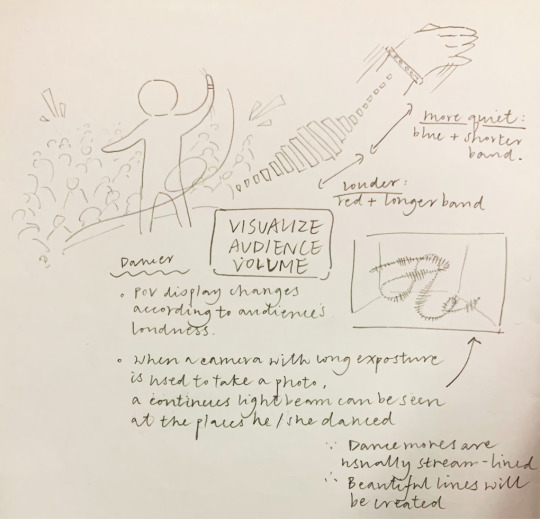 more quiet:
blue + shorter
band.
louder:
red + longer band
VISUALIZE
AUDIENCE
VOLUME
Dancer
• POV display changes
according to audience's
loudness.
• When a camera with long exposure
is used to take a photo,
a continues light beam can be seen
at the places he/she danced
∵ Dance moves are
usually stream-lined
∴ Beautiful lines will
be created